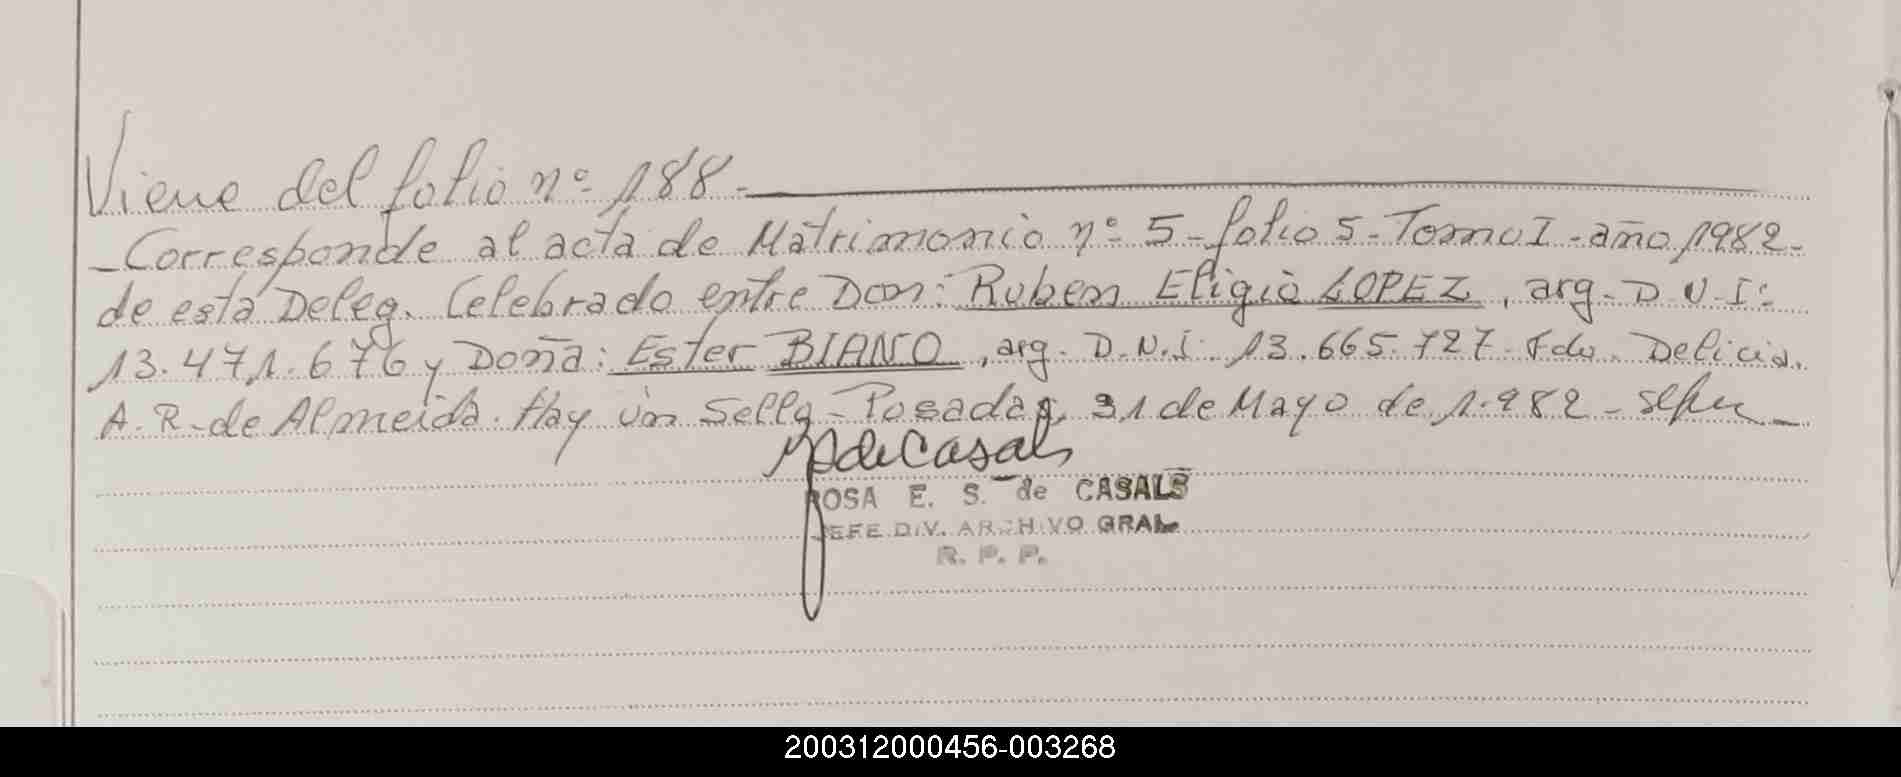 Viene del folio nº 188 -
- Corresponde al acta de Matrimonio nº 5 - folio 5 - Tomo I - año 1982 -
de esta Deleg. Celebrado entre Don: Ruben Eligio LOPEZ, arg. D.N.I:
13.471.676 y Doña: Ester BIANO, arg. D.N.I. 13.665.727. Fdo. Delicia.
A. R. de Almeida. Hay un Sello - Posadas, 31 de Mayo de 1.982 -
de Casals
ROSA E. S. de CASALS
JEFE DIV. ARCHIVO GRAL
R. P. P.
200312000456-003268